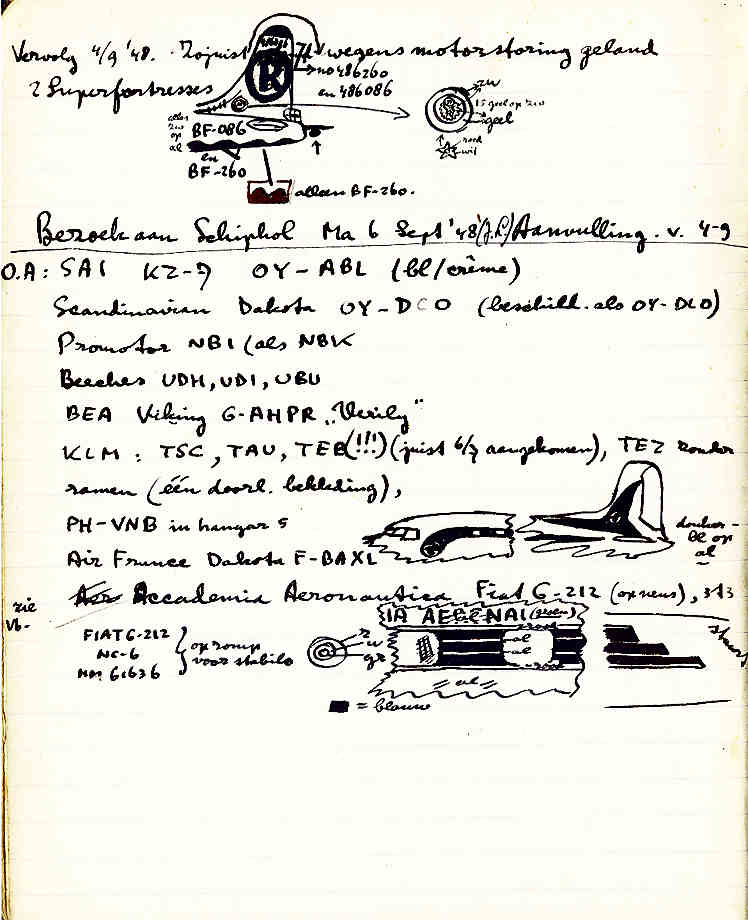 Vervolg 4/9 '48. Zojuist wegens motorstoring geland
2 Superfortresses
no 486260
en 486086
zw
15 geel op zw
geel
rood
wit
alles
zw
op
al
BF-086
en
BF-260
alleen BF-260.
Bezoek aan Schiphol Ma 6 Sept '48 Aanvulling. v. 4-9
O.A: SAI KZ-7 OY-ABL (bl/crème)
Scandinavian Dakota OY-DCO (beschild. als OY-DLO)
Promotor NBI (als NBK
Beeches UDH, UDI, UBU
BEA Viking G-AHPR „Verily"
KLM: TSC, TAU, TEB(!!!) (juist 6/9 aangekomen), TEZ zonder
ramen (één doorl. bekleding),
PH-VNB in hangar 5
donker-
bl op
al
Air France Dakota F-BAXL
zie
Accademia Aeronautica Fiat G-212 (op neus), 313
FIAT G-212
NC-6
MM. 61636
op romp
voor stabilo
r
w
gr
rood
al
al
rood
al
= blauw